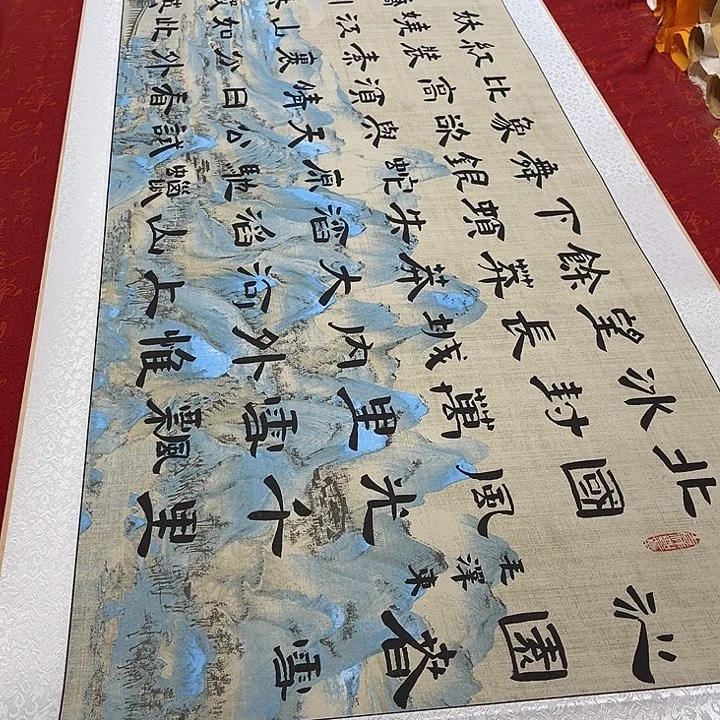 沁園春雪
毛澤東
北國風光千里
冰封萬里雪飄
望長城內外惟
餘莽莽大河上
下頓失滔滔山
舞銀蛇原馳蠟
象欲與天公試
比高須晴日看
紅裝素裹分外
妖嬈江山如此